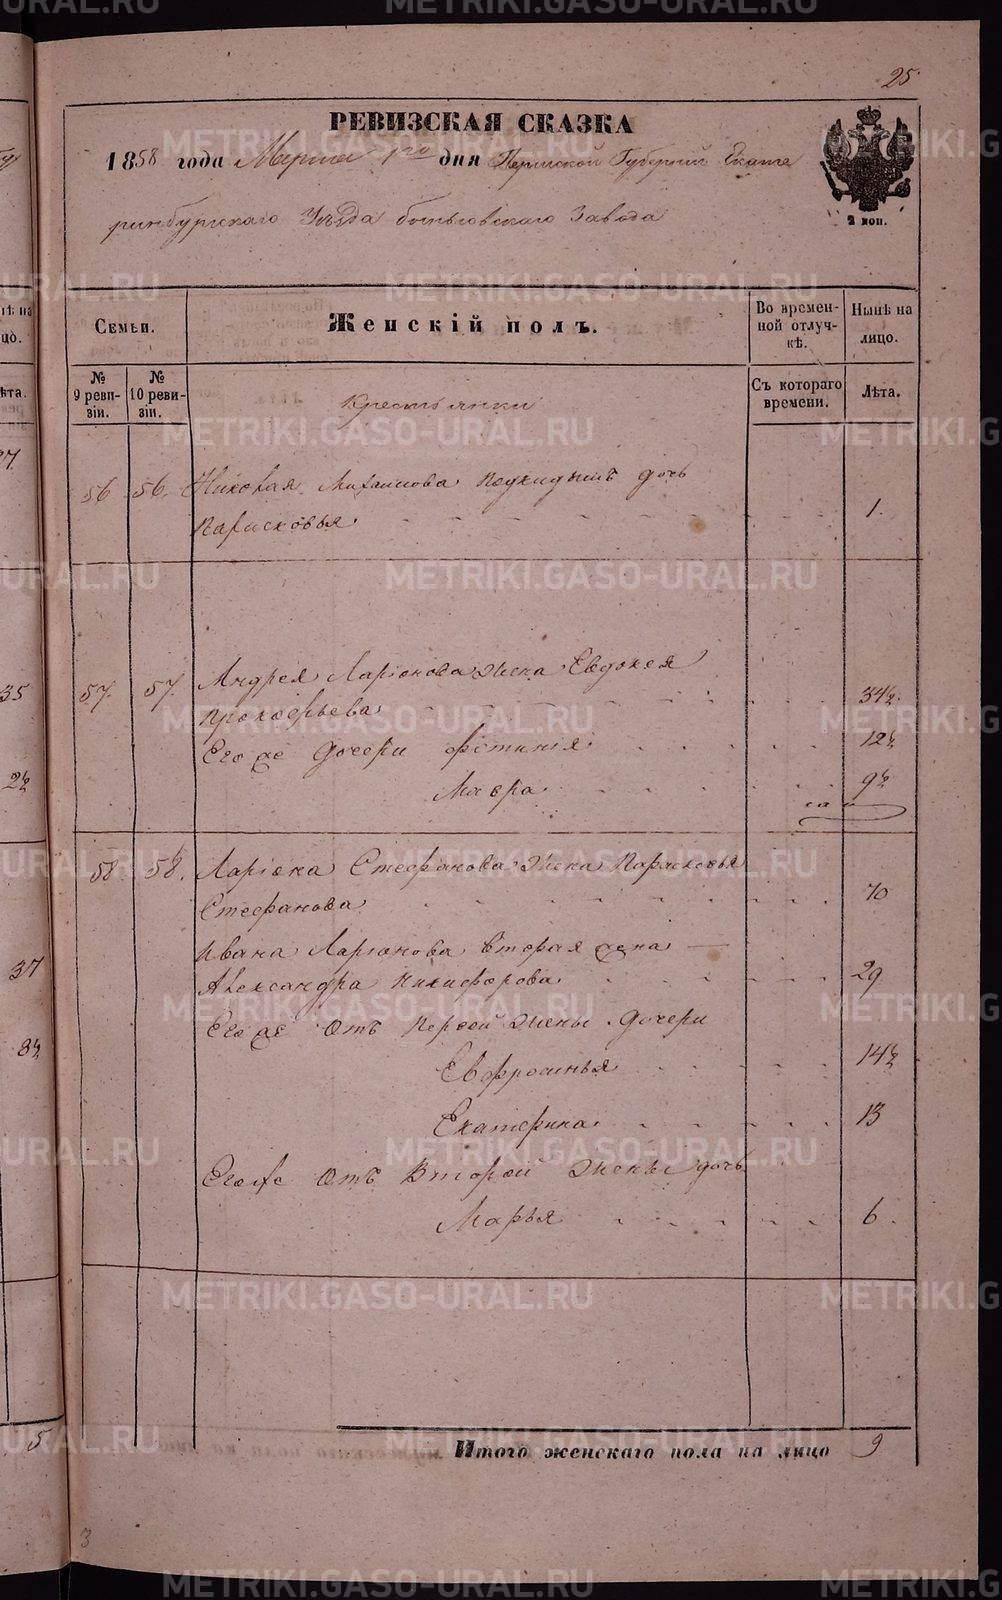 25
РЕВИЗСКАЯ СКАЗКА
1858 года Марта 1го дня Пермской Губерніи Екате
ринбургскаго Уѣзда Завода
2 коп.
Семьи.
Женскій полъ.
Во времен-
ной отлуч-
кѣ.
Нынѣ на
лицо.
№
9 реви-
зіи.
№
10 реви-
зіи.
Крестьянки
Съ котораго
времени.
Лѣта.
56 56. Михаилова Подкидышъ дочь
Парасковья 1.
57. 57. Андрея Ларіонова жена Евдокея
Прокофьева 34½
Его же дочери Фетинія 12½
Мавра 9½
58 58. Ларіона Стефанова жена Парасковья
Стефанова 70
Ивана Ларіонова вторая жена
Александра Никифорова 29
Его же Отъ Первой жены дочери
Евфросинья 14½
Екатерина 13
Его же Отъ Второй жены дочь
Марья 6.
Итого женскаго пола на лицо 9
3
METRIKI.GASO-URAL.RU